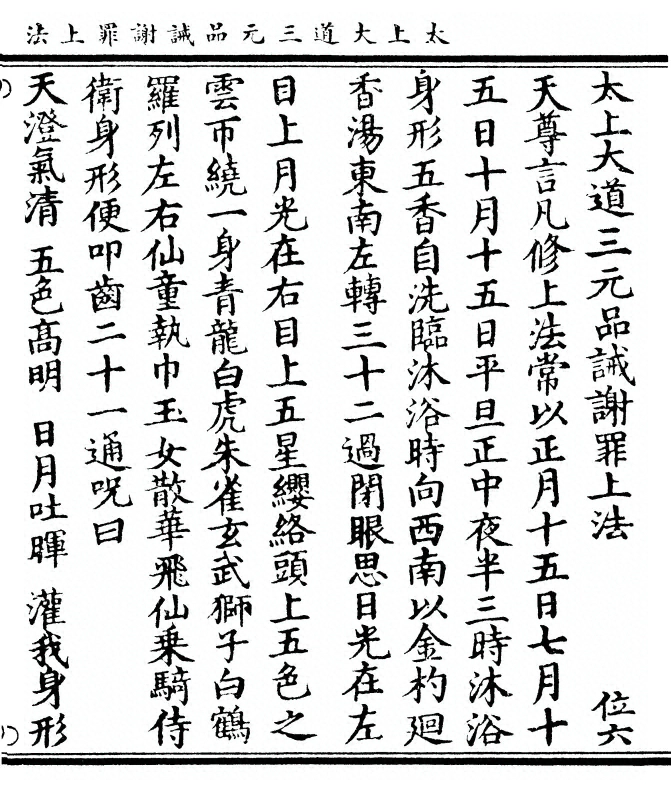 太上大道三元品誡謝罪上法
太上大道三元品誡謝罪上法 位六
天尊言凡修上法常以正月十五日七月十
五日十月十五日平旦正中夜半三時沐浴
身形五香自洗臨沐浴時向西南以金杓廻
香湯東南左轉三十二過閉眼思日光在左
目上月光在右目上五星纓絡頭上五色之
雲帀繞一身青龍白虎朱雀玄武獅子白鶴
羅列左右仙童執巾玉女散華飛仙乗騎侍
衛身形便叩齒二十一通呪曰
天澄氣清 五色髙明 日月吐暉 灌我身形